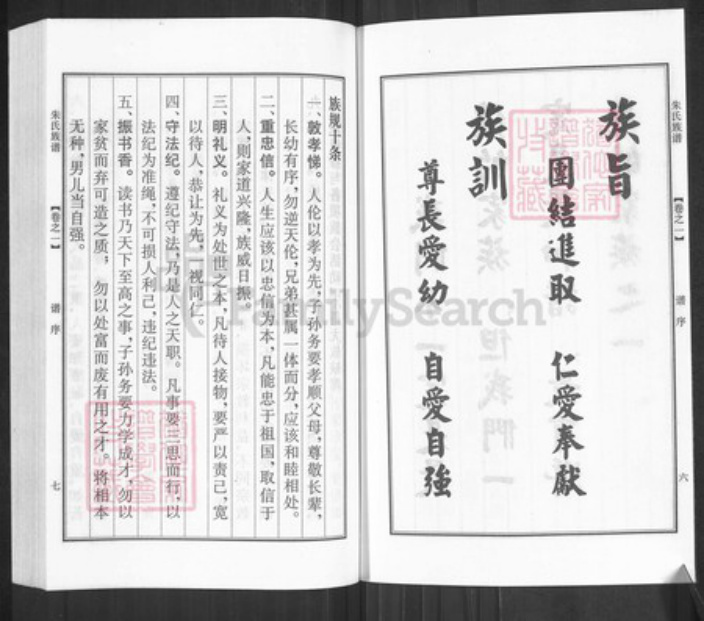 朱氏族谱
【卷之一】
谱序
六
族旨
團結進取 仁愛奉獻
族訓
尊長愛幼 自愛自強
族规十条
一、敦孝悌。人伦以孝为先,子孙务要孝顺父母,尊敬长辈,
长幼有序,勿逆天伦,兄弟甚属一体而分,应该和睦相处。
二、重忠信。人生应该以忠信为本,凡能忠于祖国,取信于
人,则家道兴隆,族威日振。
三、明礼义。礼义为处世之本,凡待人接物,要严以责己,宽
以待人,恭让为先,一视同仁。
四、守法纪。遵纪守法,乃是人之天职。凡事要三思而行,以
法纪为准绳,不可损人利己,违纪违法。
五、振书香。读书乃天下至高之事,子孙务要力学成才,勿以
家贫而弃可造之质,勿以处富而废有用之才。将相本
无种,男儿当自强。
朱氏族谱
【卷之一】
谱序
七
FamilySearch